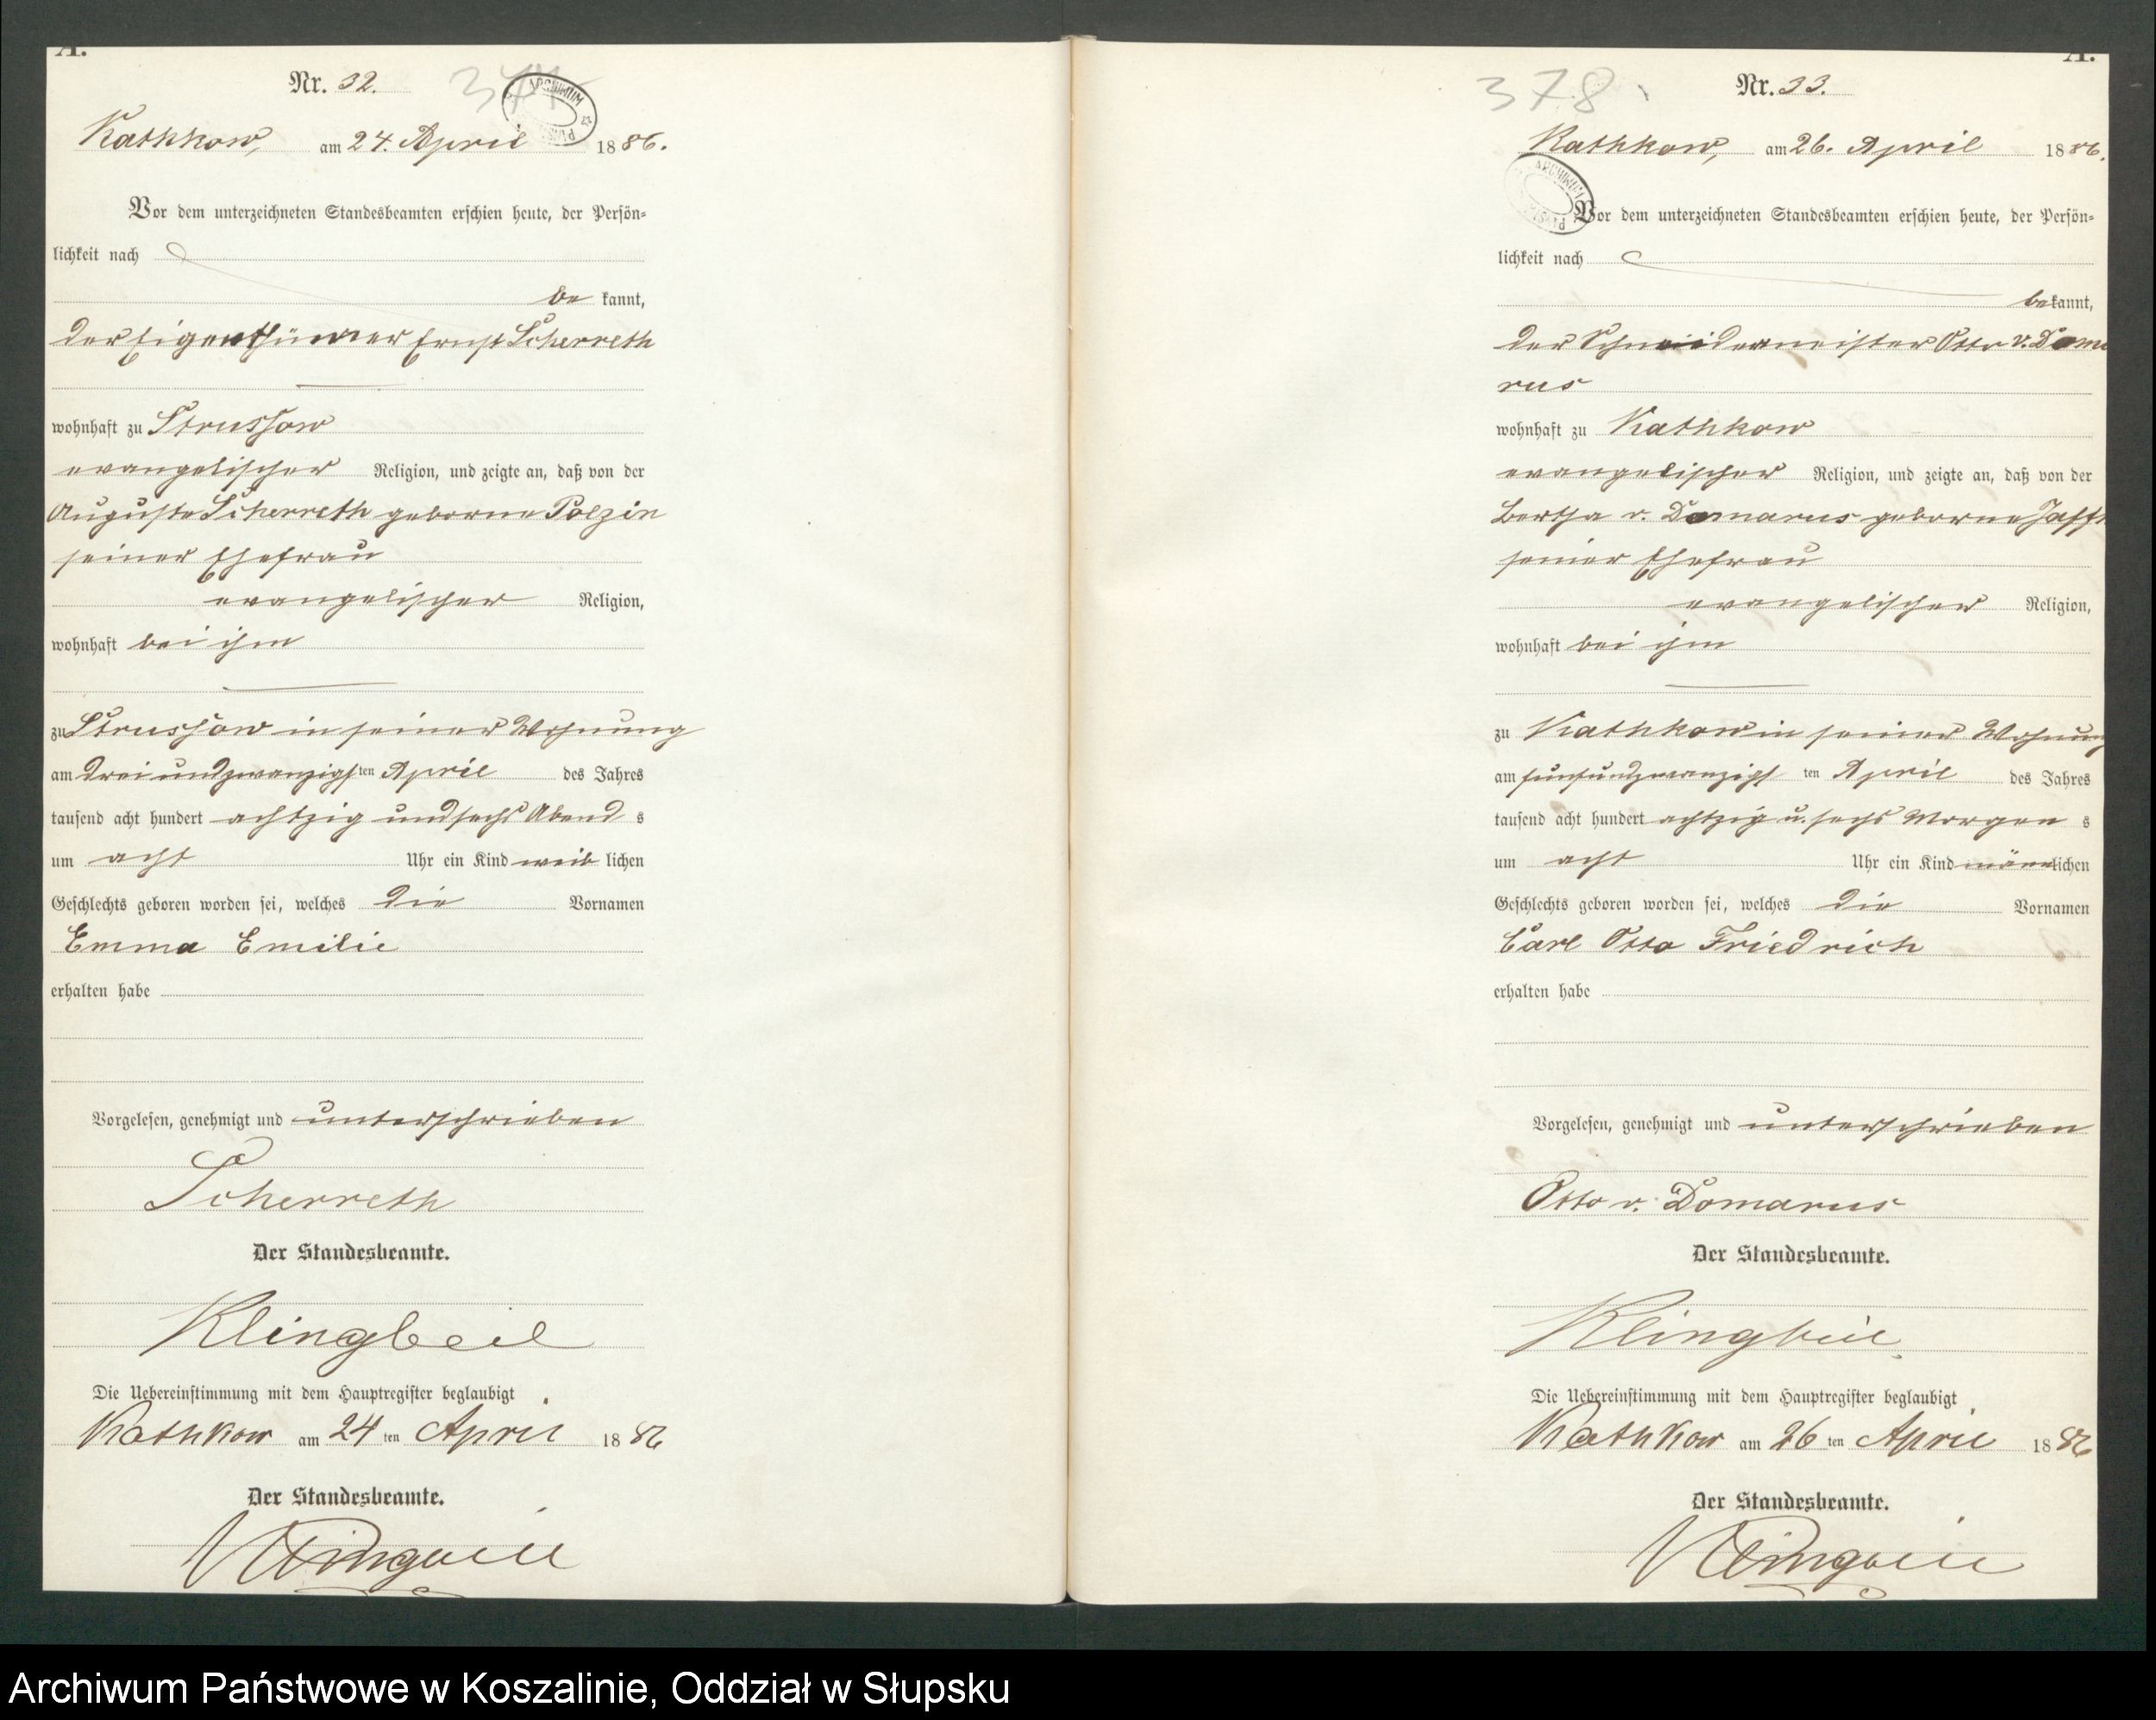 A.
Nr. 32.
Kathkow, am 24. April 1886.
Vor dem unterzeichneten Standesbeamten erschien heute, der Persön=
lichkeit nach
be kannt,
der Eigenthümer Ernst Scherreth
wohnhaft zu Strussow
evangelischer Religion, und zeigte an, daß von der
Auguste Scherreth geborne Polzin
seiner Ehefrau
evangelischer Religion,
wohnhaft bei ihm
zu Strussow in seiner Wohnung
am drei und zwanzigsten April des Jahres
tausend acht hundert achtzig und sechs Abend s
um acht Uhr ein Kind weib lichen
Geschlechts geboren worden sei, welches die Vornamen
Emma Emilie
erhalten habe
Vorgelesen, genehmigt und unterschrieben
Scherreth
Der Standesbeamte.
Klingbeil
Die Uebereinstimmung mit dem Hauptregister beglaubigt
Kathkow am 24 ten April 1886
Der Standesbeamte.
Klingbeil
A.
378. Nr. 33.
Kathkow, am 26. April 1886.
ARCHIWUM
Vor dem unterzeichneten Standesbeamten erschien heute, der Persön=
lichkeit nach
bekannt,
der Schneidermeister Otto v. Doma
rus
wohnhaft zu Kathkow
evangelischer Religion, und zeigte an, daß von der
Bertha v. Domarus geborne
seiner Ehefrau
evangelischer Religion,
wohnhaft bei ihm
zu Kathkow in seiner Wohnung
am fünfundzwanzigst ten April des Jahres
tausend acht hundert achtzig u. sechs Morgen s
um acht Uhr ein Kind männlichen
Geschlechts geboren worden sei, welches die Vornamen
Carl Otto Friedrich
erhalten habe
Vorgelesen, genehmigt und unterschrieben
Otto v. Domarus
Der Standesbeamte.
Klingbeil
Die Uebereinstimmung mit dem Hauptregister beglaubigt
Kathkow am 26 ten April 1886
Der Standesbeamte.
Klingbeil
Archiwum Państwowe w Koszalinie, Oddział w Słupsku